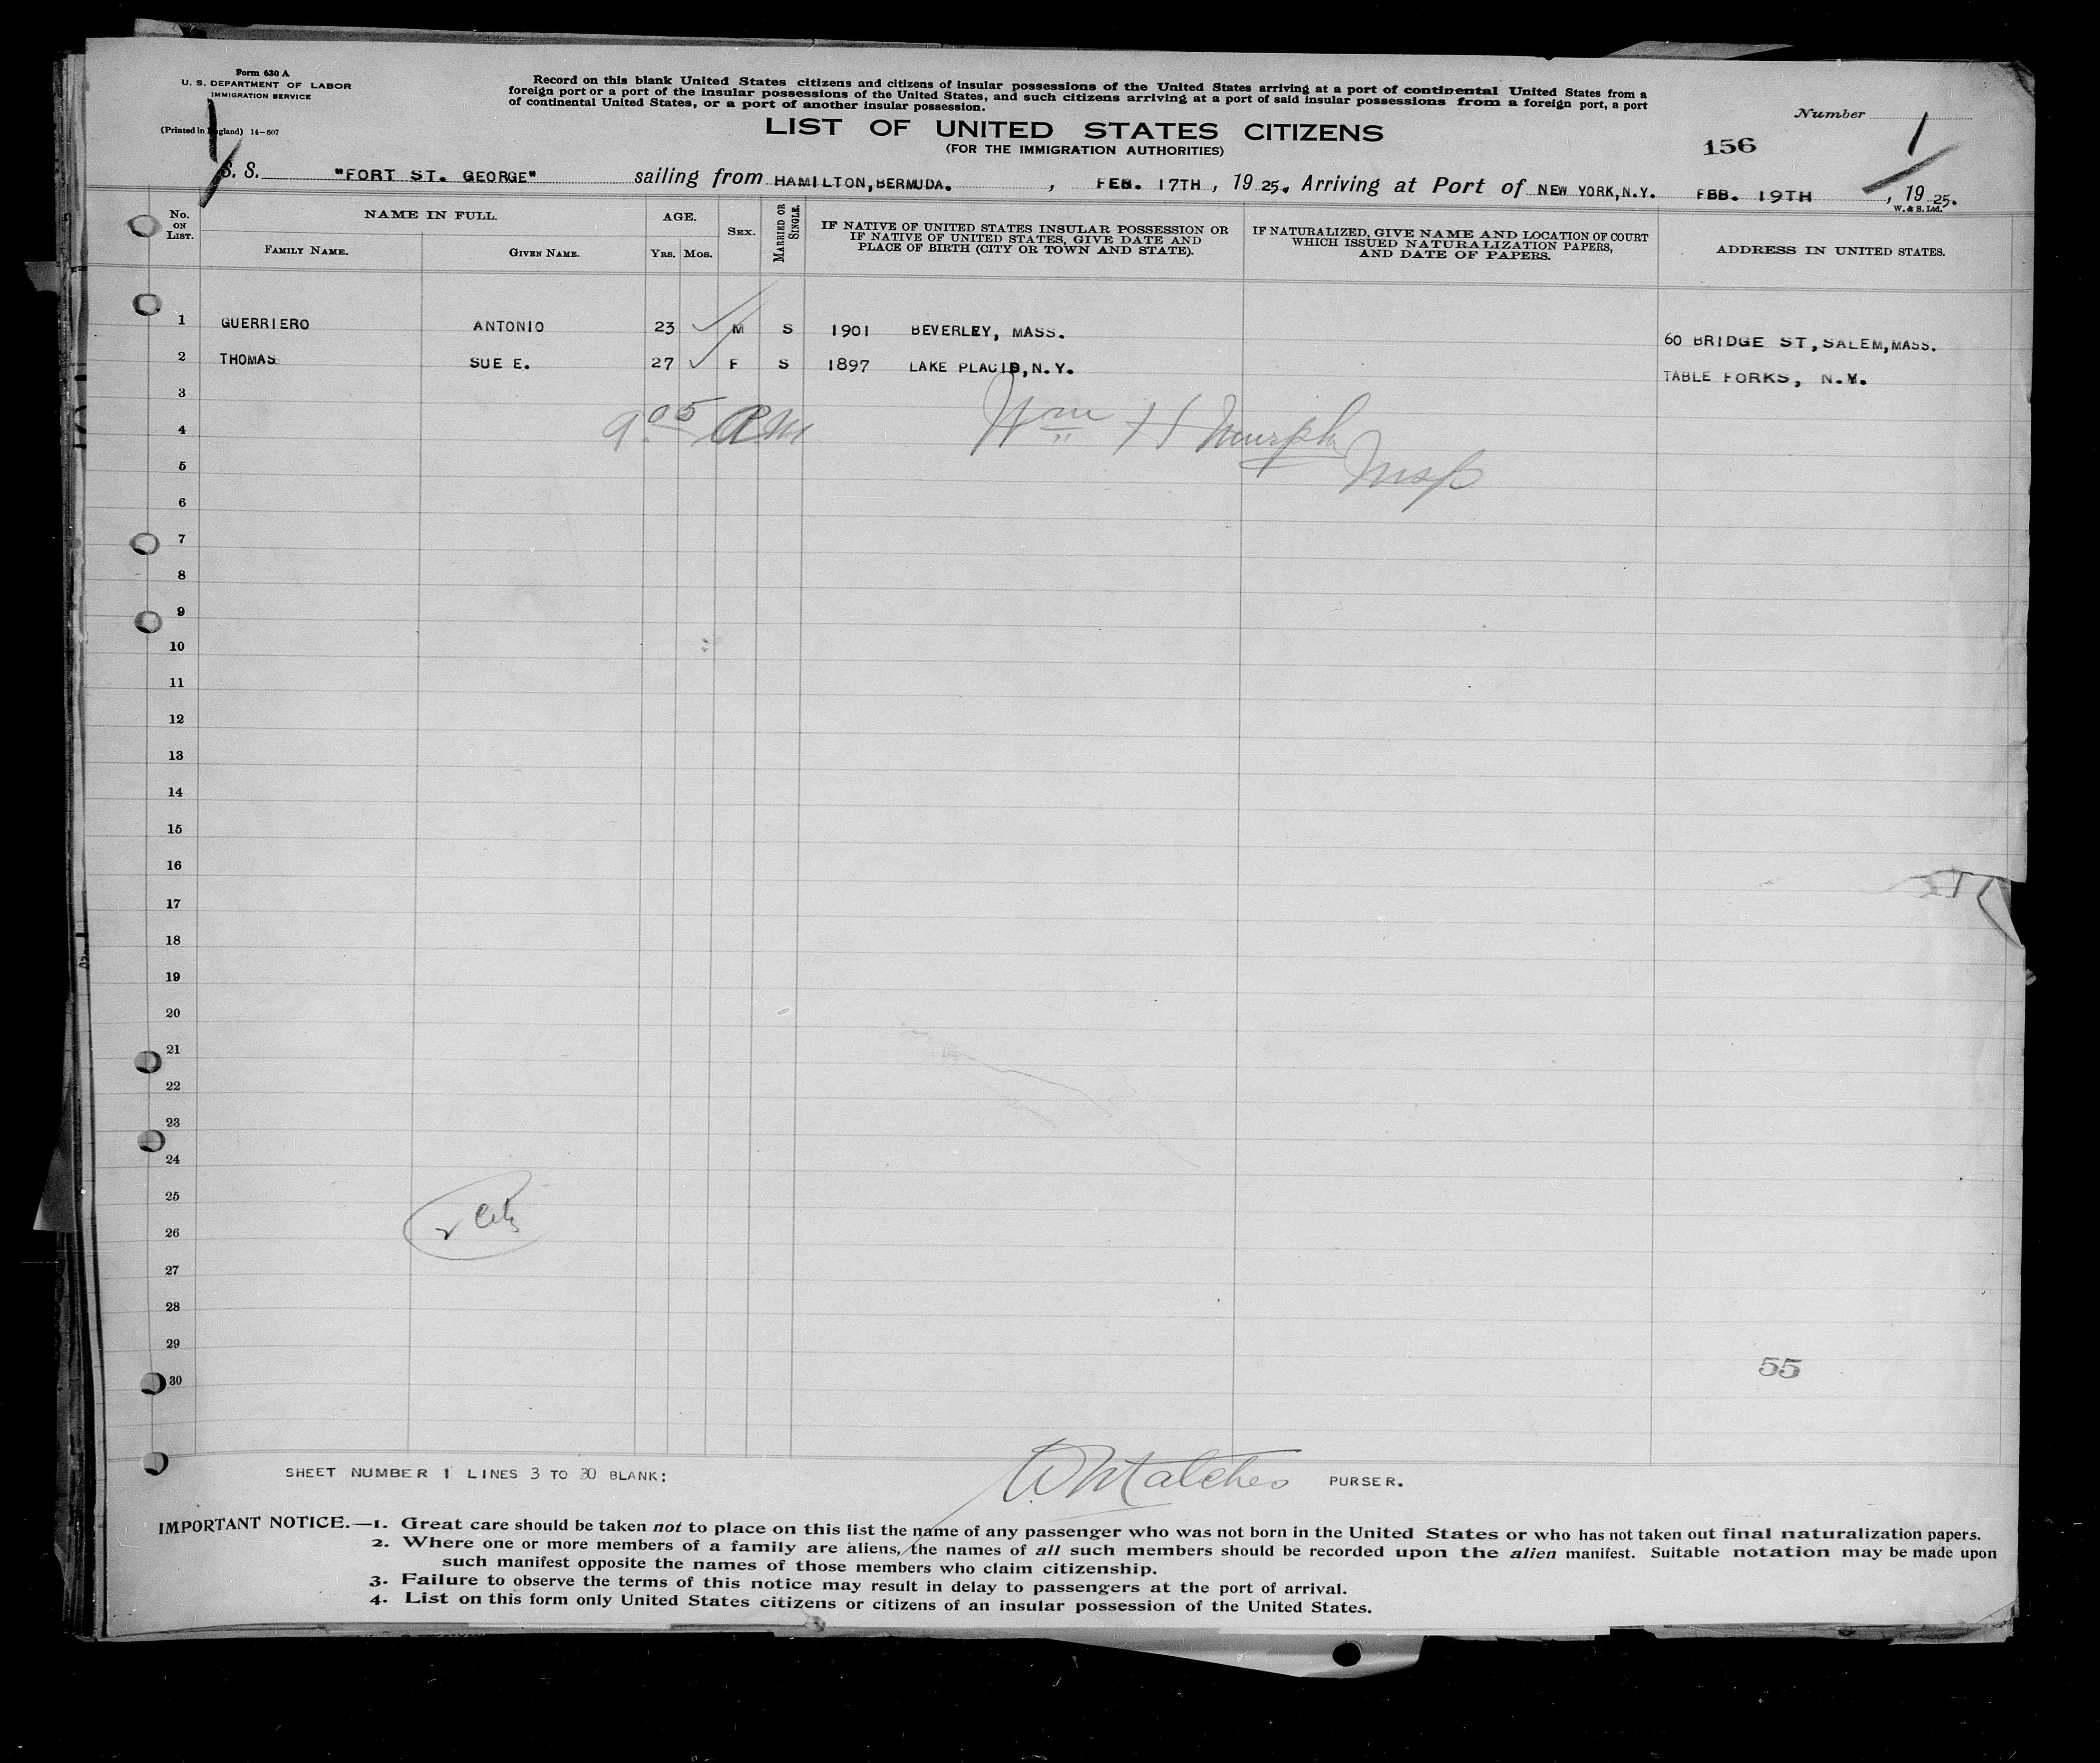 Form 630 A
U. S. DEPARTMENT OF LABOR
IMMIGRATION SERVICE
(Printed in England) 14-607
Record on this blank United States citizens and citizens of insular possessions of the United States arriving at a port of continental United States from a
foreign port or a port of the insular possessions of the United States, and such citizens arriving at a port of said insular possessions from a foreign port, a port
of continental United States, or a port of another insular possession.
LIST OF UNITED STATES CITIZENS
(FOR THE IMMIGRATION AUTHORITIES)
Number 1
156
S. S. "FORT ST. GEORGE" sailing from HAMILTON, BERMUDA. , FEB. 17TH , 19 25. Arriving at Port of NEW YORK, N.Y. FEB. 19TH , 19 25.
W. & S. Ltd.
No. ON LIST. NAME IN FULL. AGE. SEX. MARRIED OR SINGLE. IF NATIVE OF UNITED STATES INSULAR POSSESSION OR IF NATIVE OF UNITED STATES, GIVE DATE AND PLACE OF BIRTH (CITY OR TOWN AND STATE). IF NATURALIZED, GIVE NAME AND LOCATION OF COURT WHICH ISSUED NATURALIZATION PAPERS, AND DATE OF PAPERS. ADDRESS IN UNITED STATES.
FAMILY NAME. GIVEN NAME. YRS. MOS.
1 GUERRIERO ANTONIO 23 M S 1901 BEVERLEY, MASS. 60 BRIDGE ST, SALEM, MASS.
2 THOMAS SUE E. 27 F S 1897 LAKE PLACID, N.Y. TABLE FORKS, N.Y.
3
4 9.05 AM Wm H Murphy
5 Insp
6
7
8
9
10
11
12
13
14
15
16
17
18
19
20
21
22
23
24
25
26
27
28
29
30
55
SHEET NUMBER 1 LINES 3 TO 30 BLANK: PURSER.
IMPORTANT NOTICE.—1. Great care should be taken not to place on this list the name of any passenger who was not born in the United States or who has not taken out final naturalization papers.
2. Where one or more members of a family are aliens, the names of all such members should be recorded upon the alien manifest. Suitable notation may be made upon
such manifest opposite the names of those members who claim citizenship.
3. Failure to observe the terms of this notice may result in delay to passengers at the port of arrival.
4. List on this form only United States citizens or citizens of an insular possession of the United States.